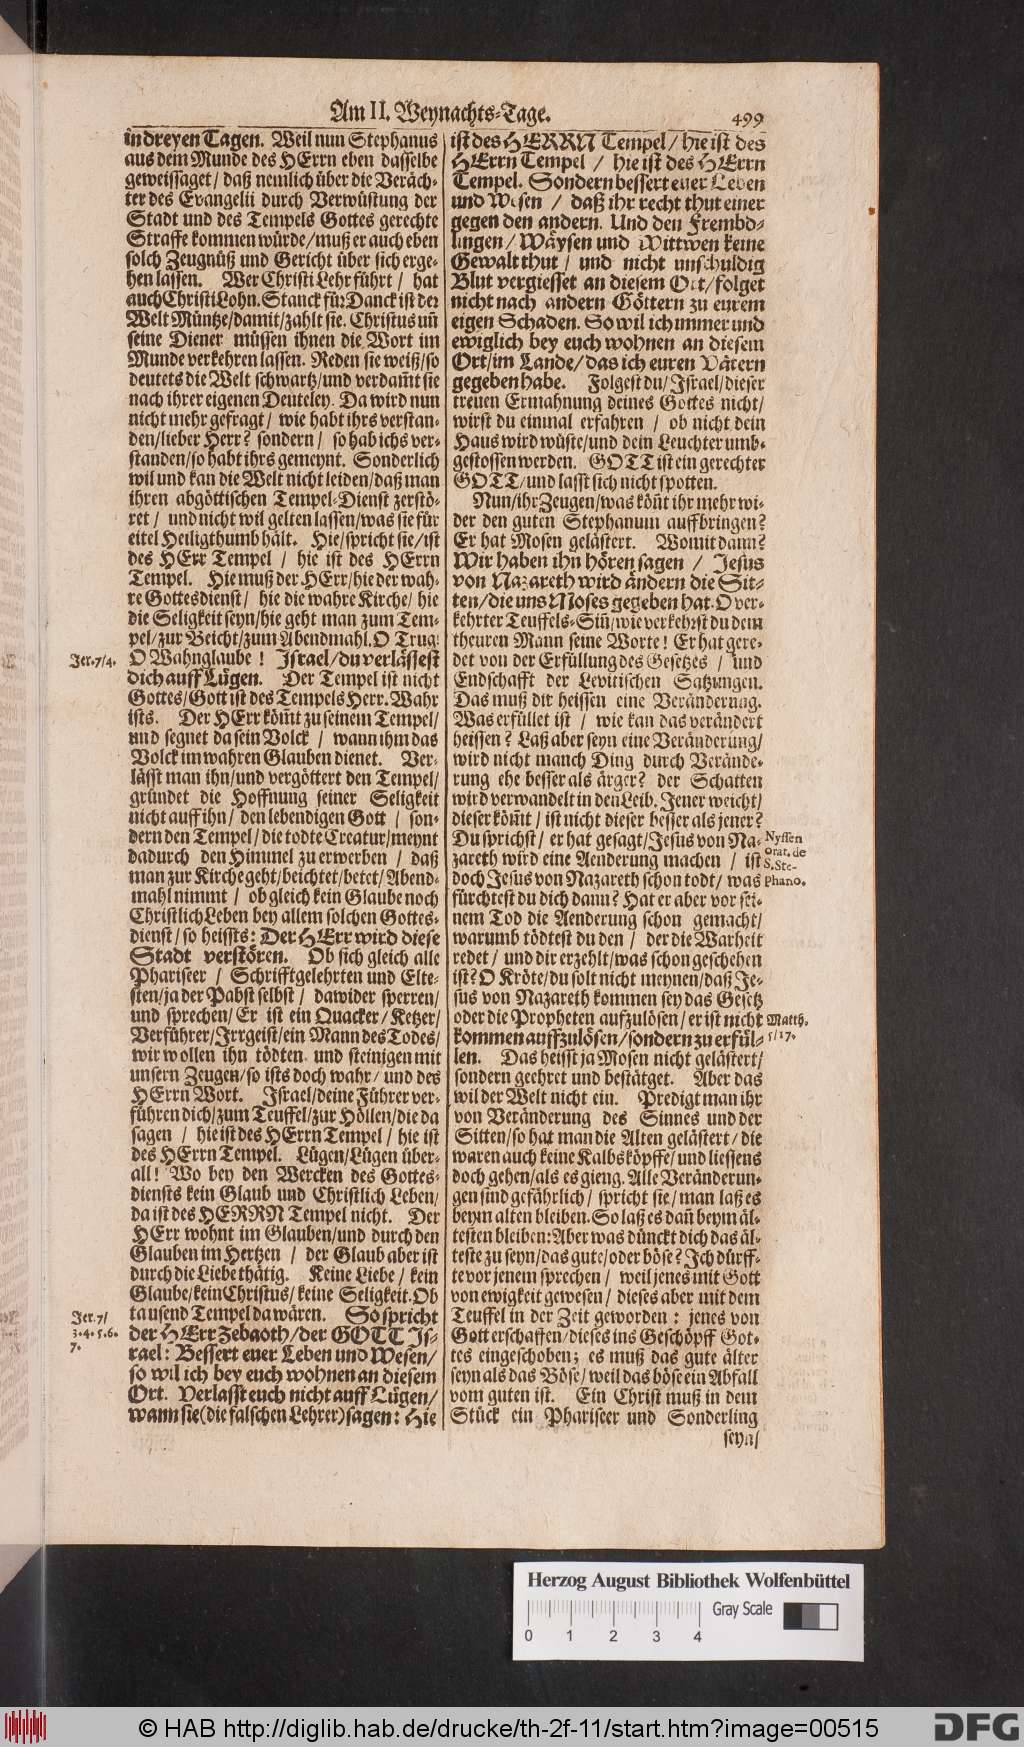 Am II. Weynachts-Tage.
499
in dreyen Tagen. Weil nun Stephanus
aus dem Munde des HErrn eben dasselbe
geweissaget / daß nemlich über die Veräch-
ter des Evangelii durch Verwüstung der
Stadt und des Tempels Gottes gerechte
Straffe kommen würde / muß er auch eben
solch Zeugnüß und Gericht über sich erge-
hen lassen. Wer Christi Lehr führt / hat
auch Christi Lohn. Stanck für Danck ist der
Welt Müntze / damit / zahlt sie. Christus uñ
seine Diener müssen ihnen die Wort im
Munde verkehren lassen. Reden sie weiß / so
deutets die Welt schwartz / und verdam̃t sie
nach ihrer eigenen Deuteley. Da wird nun
nicht mehr gefragt / wie habt ihrs verstan-
den / lieber Herr? sondern / so hab ichs ver-
standen / so habt ihrs gemeynt. Sonderlich
wil und kan die Welt nicht leiden / daß man
ihren abgöttischen Tempel-Dienst zerstö-
ret / und nicht wil gelten lassen / was sie für
eitel Heiligthumb hält. Hie / spricht sie / ist
des HErr Tempel / hie ist des HErrn
Tempel. Hie muß der HErr / hie der wah-
re Gottesdienst / hie die wahre Kirche / hie
die Seligkeit seyn / hie geht man zum Tem-
pel / zur Beicht / zum Abendmahl. O Trug!
Jer. 7/4.
O Wahnglaube! Israel / du verlässest
dich auff Lügen. Der Tempel ist nicht
Gottes / Gott ist des Tempels Herr. Wahr
ists. Der HErr köm̃t zu seinem Tempel /
und segnet da sein Volck / wann ihm das
Volck im wahren Glauben dienet. Ver-
lässt man ihn / und vergöttert den Tempel /
gründet die Hoffnung seiner Seligkeit
nicht auff ihn / den lebendigen Gott / son-
dern den Tempel / die todte Creatur / meynt
dadurch den Himmel zu erwerben / daß
man zur Kirche geht / beichtet / betet / Abend-
mahl nimmt / ob gleich kein Glaube noch
Christlich Leben bey allem solchen Gottes-
dienst / so heissts: Der HErr wird diese
Stadt verstören. Ob sich gleich alle
Phariseer / Schrifftgelehrten und Elte-
sten / ja der Pabst selbst / dawider sperren /
und sprechen / Er ist ein Quacker / Ketzer /
Verführer / Irrgeist / ein Mann des Todes /
wir wollen ihn tödten und steinigen mit
unsern Zeugen / so ists doch wahr / und des
HErrn Wort. Israel / deine Führer ver-
führen dich / zum Teuffel / zur Höllen / die da
sagen / hie ist des HErrn Tempel / hie ist
des HErrn Tempel. Lügen / Lügen über-
all! Wo bey den Wercken des Gottes-
diensts kein Glaub und Christlich Leben /
da ist des HERRN Tempel nicht. Der
HErr wohnt im Glauben / und durch den
Glauben im Hertzen / der Glaub aber ist
durch die Liebe thätig. Keine Liebe / kein
Glaube / kein Christus / keine Seligkeit. Ob
Jer. 7/
3. 4. 5. 6.
7.
tausend Tempel da wären. So spricht
der HErr Zebaoth / der GOTT Is-
rael: Bessert euer Leben und Wesen /
so wil ich bey euch wohnen an diesem
Ort. Verlasst euch nicht auff Lügen /
wann sie (die falschen Lehrer) sagen: Hie
ist des HERRN Tempel / hie ist des
HErrn Tempel / hie ist des HErrn
Tempel. Sondern bessert euer Leben
und Wesen / daß ihr recht thut einer
gegen den andern. Und den Frembd-
lingen / Wäysen und Wittwen keine
Gewalt thut / und nicht unschuldig
Blut vergiesset an diesem Ort / folget
nicht nach andern Göttern zu eurem
eigen Schaden. So wil ich immer und
ewiglich bey euch wohnen an diesem
Ort / im Lande / das ich euren Vätern
gegeben habe. Folgest du / Israel / dieser
treuen Ermahnung deines Gottes nicht /
wirst du einmal erfahren / ob nicht dein
Haus wird wüste / und dein Leuchter umb-
gestossen werden. GOTT ist ein gerechter
GOTT / und lasst sich nicht spotten.
Nun / ihr Zeugen / was köñt ihr mehr wi-
der den guten Stephanum auffbringen?
Er hat Mosen gelästert. Womit dann?
Wir haben ihn hören sagen / Jesus
von Nazareth wird ändern die Sit-
ten / die uns Moses gegeben hat. O ver-
kehrter Teuffels-Siñ / wie verkehrst du dem
theuren Mann seine Worte! Er hat gere-
det von der Erfüllung des Gesetzes / und
Endschafft der Levitischen Satzungen.
Das muß dir heissen eine Veränderung.
Was erfüllet ist / wie kan das verändert
heissen? Laß aber seyn eine Veränderung /
wird nicht manch Ding durch Verände-
rung ehe besser als ärger? der Schatten
wird verwandelt in den Leib. Jener weicht /
dieser köm̃t / ist nicht dieser besser als jener?
Du sprichst / er hat gesagt / Jesus von Na-
zareth wird eine Aenderung machen / ist
doch Jesus von Nazareth schon todt / was
Nyssen
Orat. de
S. Ste-
phano.
fürchtest du dich dann? Hat er aber vor sei-
nem Tod die Aenderung schon gemacht /
warumb tödtest du den / der die Warheit
redet / und dir erzehlt / was schon geschehen
ist? O Kröte / du solt nicht meynen / daß Je-
sus von Nazareth kommen sey das Gesetz
oder die Propheten aufzulösen / er ist nicht
Matth.
5/17.
kommen auffzulösen / sondern zu erfül-
len. Das heisst ja Mosen nicht gelästert /
sondern geehret und bestätget. Aber das
wil der Welt nicht ein. Predigt man ihr
von Veränderung des Sinnes und der
Sitten / so hat man die Alten gelästert / die
waren auch keine Kalbsköpffe / und liessens
doch gehen / als es gieng. Alle Veränderun-
gen sind gefährlich / spricht sie / man laß es
beym alten bleiben. So laß es dañ beym äl-
testen bleiben: Aber was dünckt dich das äl-
teste zu seyn / das gute / oder böse? Ich dürff-
te vor jenem sprechen / weil jenes mit Gott
von ewigkeit gewesen / dieses aber mit dem
Teuffel in der Zeit geworden: jenes von
Gott erschaffen / dieses ins Geschöpff Got-
tes eingeschoben; es muß das gute älter
seyn als das Böse / weil das böse ein Abfall
vom guten ist. Ein Christ muß in dem
Stück ein Phariseer und Sonderling
seyn /
Herzog August Bibliothek Wolfenbüttel
Gray Scale
0 1 2 3 4
© HAB http://diglib.hab.de/drucke/th-2f-11/start.htm?image=00515
DFG